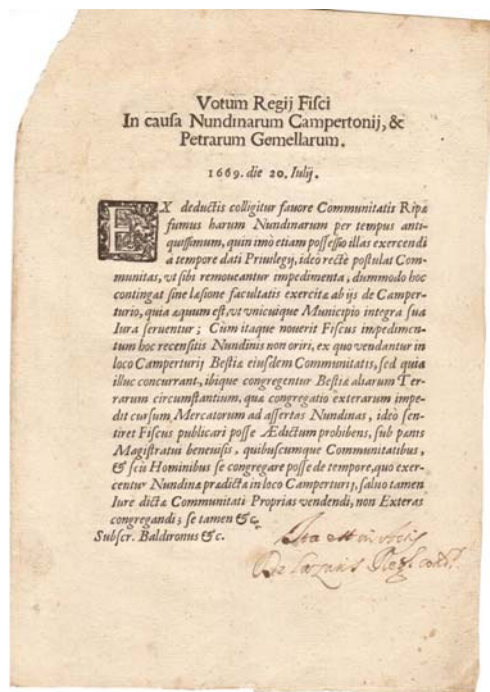 Votum Regij Fisci
In causa Nundinarum Campertonij, &
Petrarum Gemellarum.
1669. die 20. Iulij.
EX deductis colligitur fauore Communitatis Ripæ
fumus harum Nundinarum per tempus anti-
quissimum, quin imò etiam possessio illas exercendi
à tempore dati Priuilegij, ideò rectè postulat Com-
munitas, vt sibi remoueantur impedimenta, dummodo hoc
contingat sine læsione facultatis exercitæ ab ijs de Camper-
turio, quia æquum est, vt vnicuique Municipio integra sua
Iura seruentur; Cùm itaque nouerit Fiscus impedimen-
tum hoc recensitis Nundinis non oriri, ex quo vendantur in
loco Camperturij Bestiæ eiusdem Communitatis, sed quia
illuc concurrant, ibique congregentur Bestiæ aliarum Ter-
rarum circumstantium, quæ congregatio exterarum impe-
dit cursum Mercatorum ad assertas Nundinas, ideò sen-
tiret Fiscus publicari posse Ædictum prohibens, sub pœnis
Magistratui beneuisis, quibuscumque Communitatibus,
& scis Hominibus se congregare posse de tempore, quo exer-
centur Nundinæ prædictæ in loco Camperturij, saluo tamen
Iure dictæ Communitati Proprias vendendi, non Exteras
congregandi; se tamen &c.
Subscr. Baldironus &c.
Ita est in
De